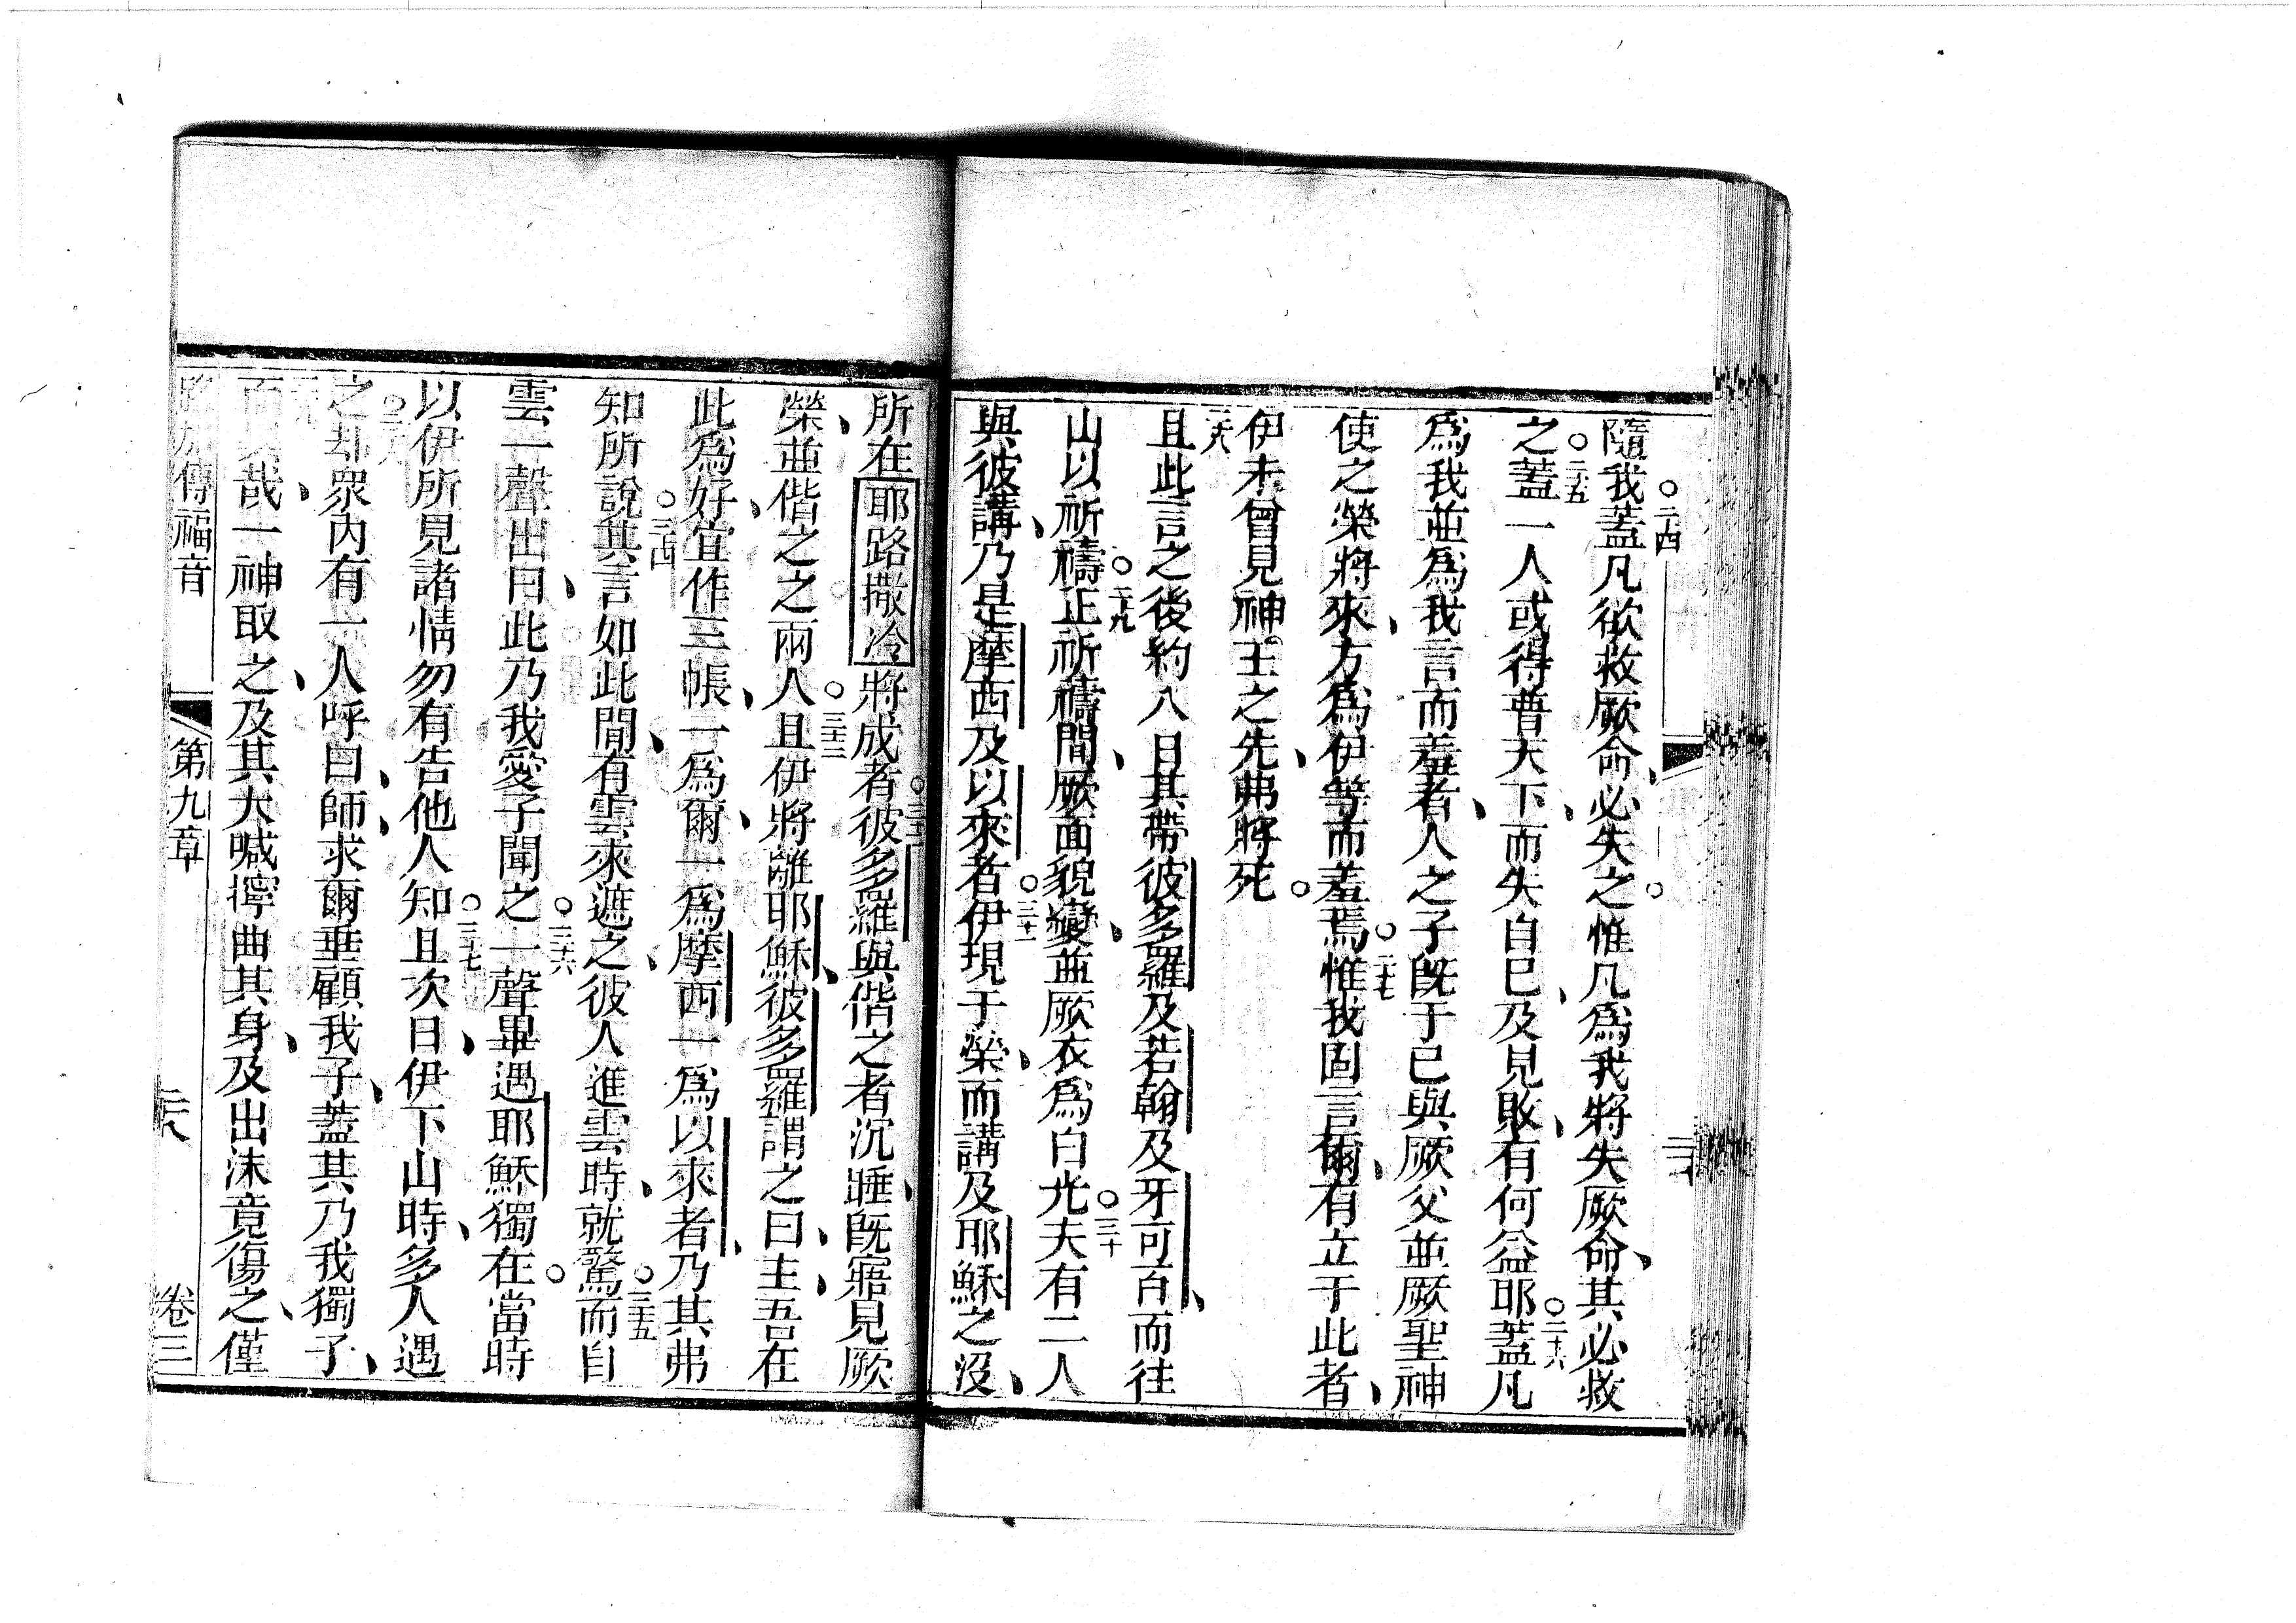 隨我○二四蓋凡欲救厥命、必失之○惟凡爲我將失厥命、其必救
之○二五蓋一人或得普天下、而失自己、及見敗、有何益耶○二十六蓋凡
爲我並爲我言而羞者、人之子旣于已與厥父並厥聖神
使之榮將來、方爲伊等而羞焉○二十七惟我固言爾、有立于此者、
伊未曾見神王之先、弗將死○
二八且此言之後約八日其帶彼多羅及若翰及牙可百、而往
山以祈禱○二九正祈禱間、厥面貌變、並厥衣爲白光○三十夫有二人
與彼講、乃是摩西及以來者○三十一伊現于榮、而講及耶穌之沒、
所在耶路撒冷將成者○三二彼多羅與偕之者沉睡、旣寤見厥
榮、並偕之之兩人○三十三且伊將離耶穌、彼多羅謂之曰、主、吾在
此爲好、宜作三帳、一爲爾、一爲摩西一爲以來者、乃其弗
知所說○三四其言如此間、有雲來遮之、彼人進雲時、就驚○三十五而自
雲一聲出曰、此乃我愛子聞之○三十六一聲畢遇耶穌獨在○當時
以伊所見諸情勿有告他人知○三十七且次日、伊下山時、多人遇
之○三八却衆內有一人呼曰、師、求爾垂顧我子、蓋其乃我獨子、
哉、一神取之、及其大喊擰曲其身、及出沫竟傷之、僅
路加傳福音 第九章 二六 卷三